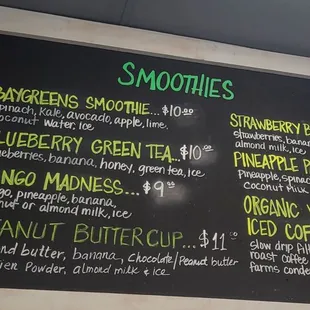 SMOOTHIES
BAYGREENS SMOOTHIE... $10.00
spinach, Kale, avocado, apple, lime,
coconut water, ice
BLUEBERRY GREEN TEA... $10.00
blueberries, banana, honey, green tea, ice
MANGO MADNESS... $9
mango, pineapple, banana,
or almond milk, ice
PEANUT BUTTERCUP... $11
butter, banana, chocolate/Peanut butter
Powder, almond milk & ice
STRAWBERRY B
strawberries, bana
almond milk, ice
PINEAPPLE P
Pineapple, spinac
coconut milk
ORGANIC
ICED COF
slow drip filt
roast coffee
farms conde